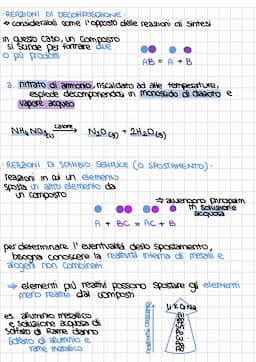 · REAZIONI DI DECOMPOSIZIONE ·
→ considerabili come l'opposto delle reazioni di sintesi
in questo caso, un composto
si scinde per formare due
o più prodotti
AB = A + B
a. nitrato di ammonio, riscaldato ad alte temperature,
esplode decomponendosi in monossido di diazoto e
vapore acqueo
NH₄NO₃(s) calore → N₂O(g) + 2H₂O(g)
· REAZIONI DI SCAMBIO SEMPLICE (O SPOSTAMENTO) ·
reazioni in cui un elemento
sposta un altro elemento da
un composto
→ avvengono
in soluzione
acquosa
A + BC = AC + B
per determinare l'eventualità dello spostamento,
bisogna conoscere la reattività interna di metalli e
alogeni non combinati
→ elementi più reattivi possono spostare gli elementi
meno reattivi dai composti
es. alluminio metallico
e soluzione acquosa di
solfato di rame danno
solfato di alluminio e
rame metallico
reattività crescente